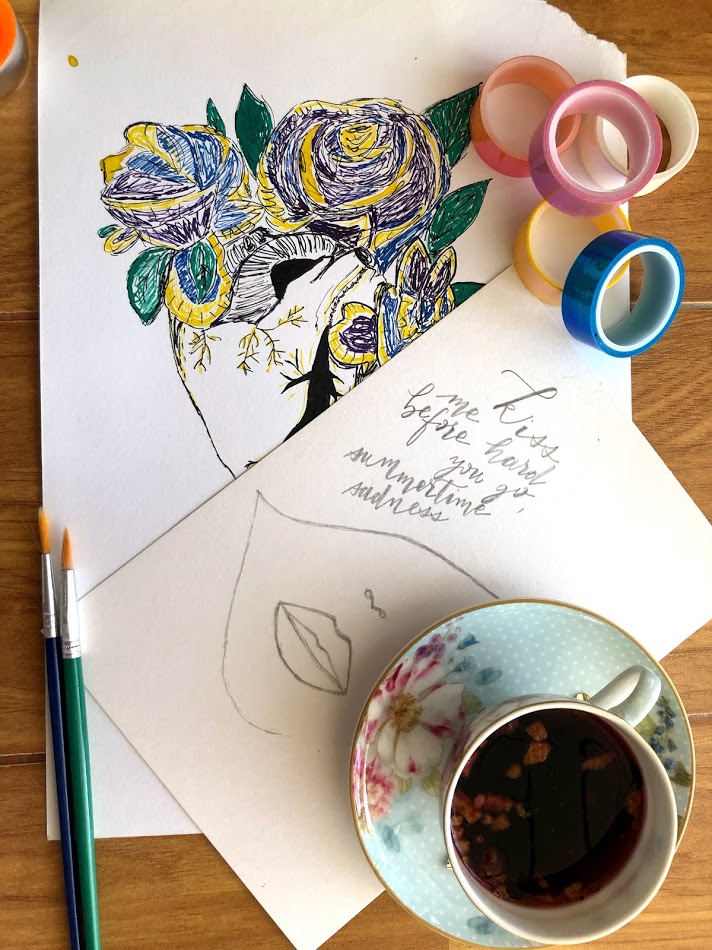 Kiss
me hard
before you go,
summertime
sadness